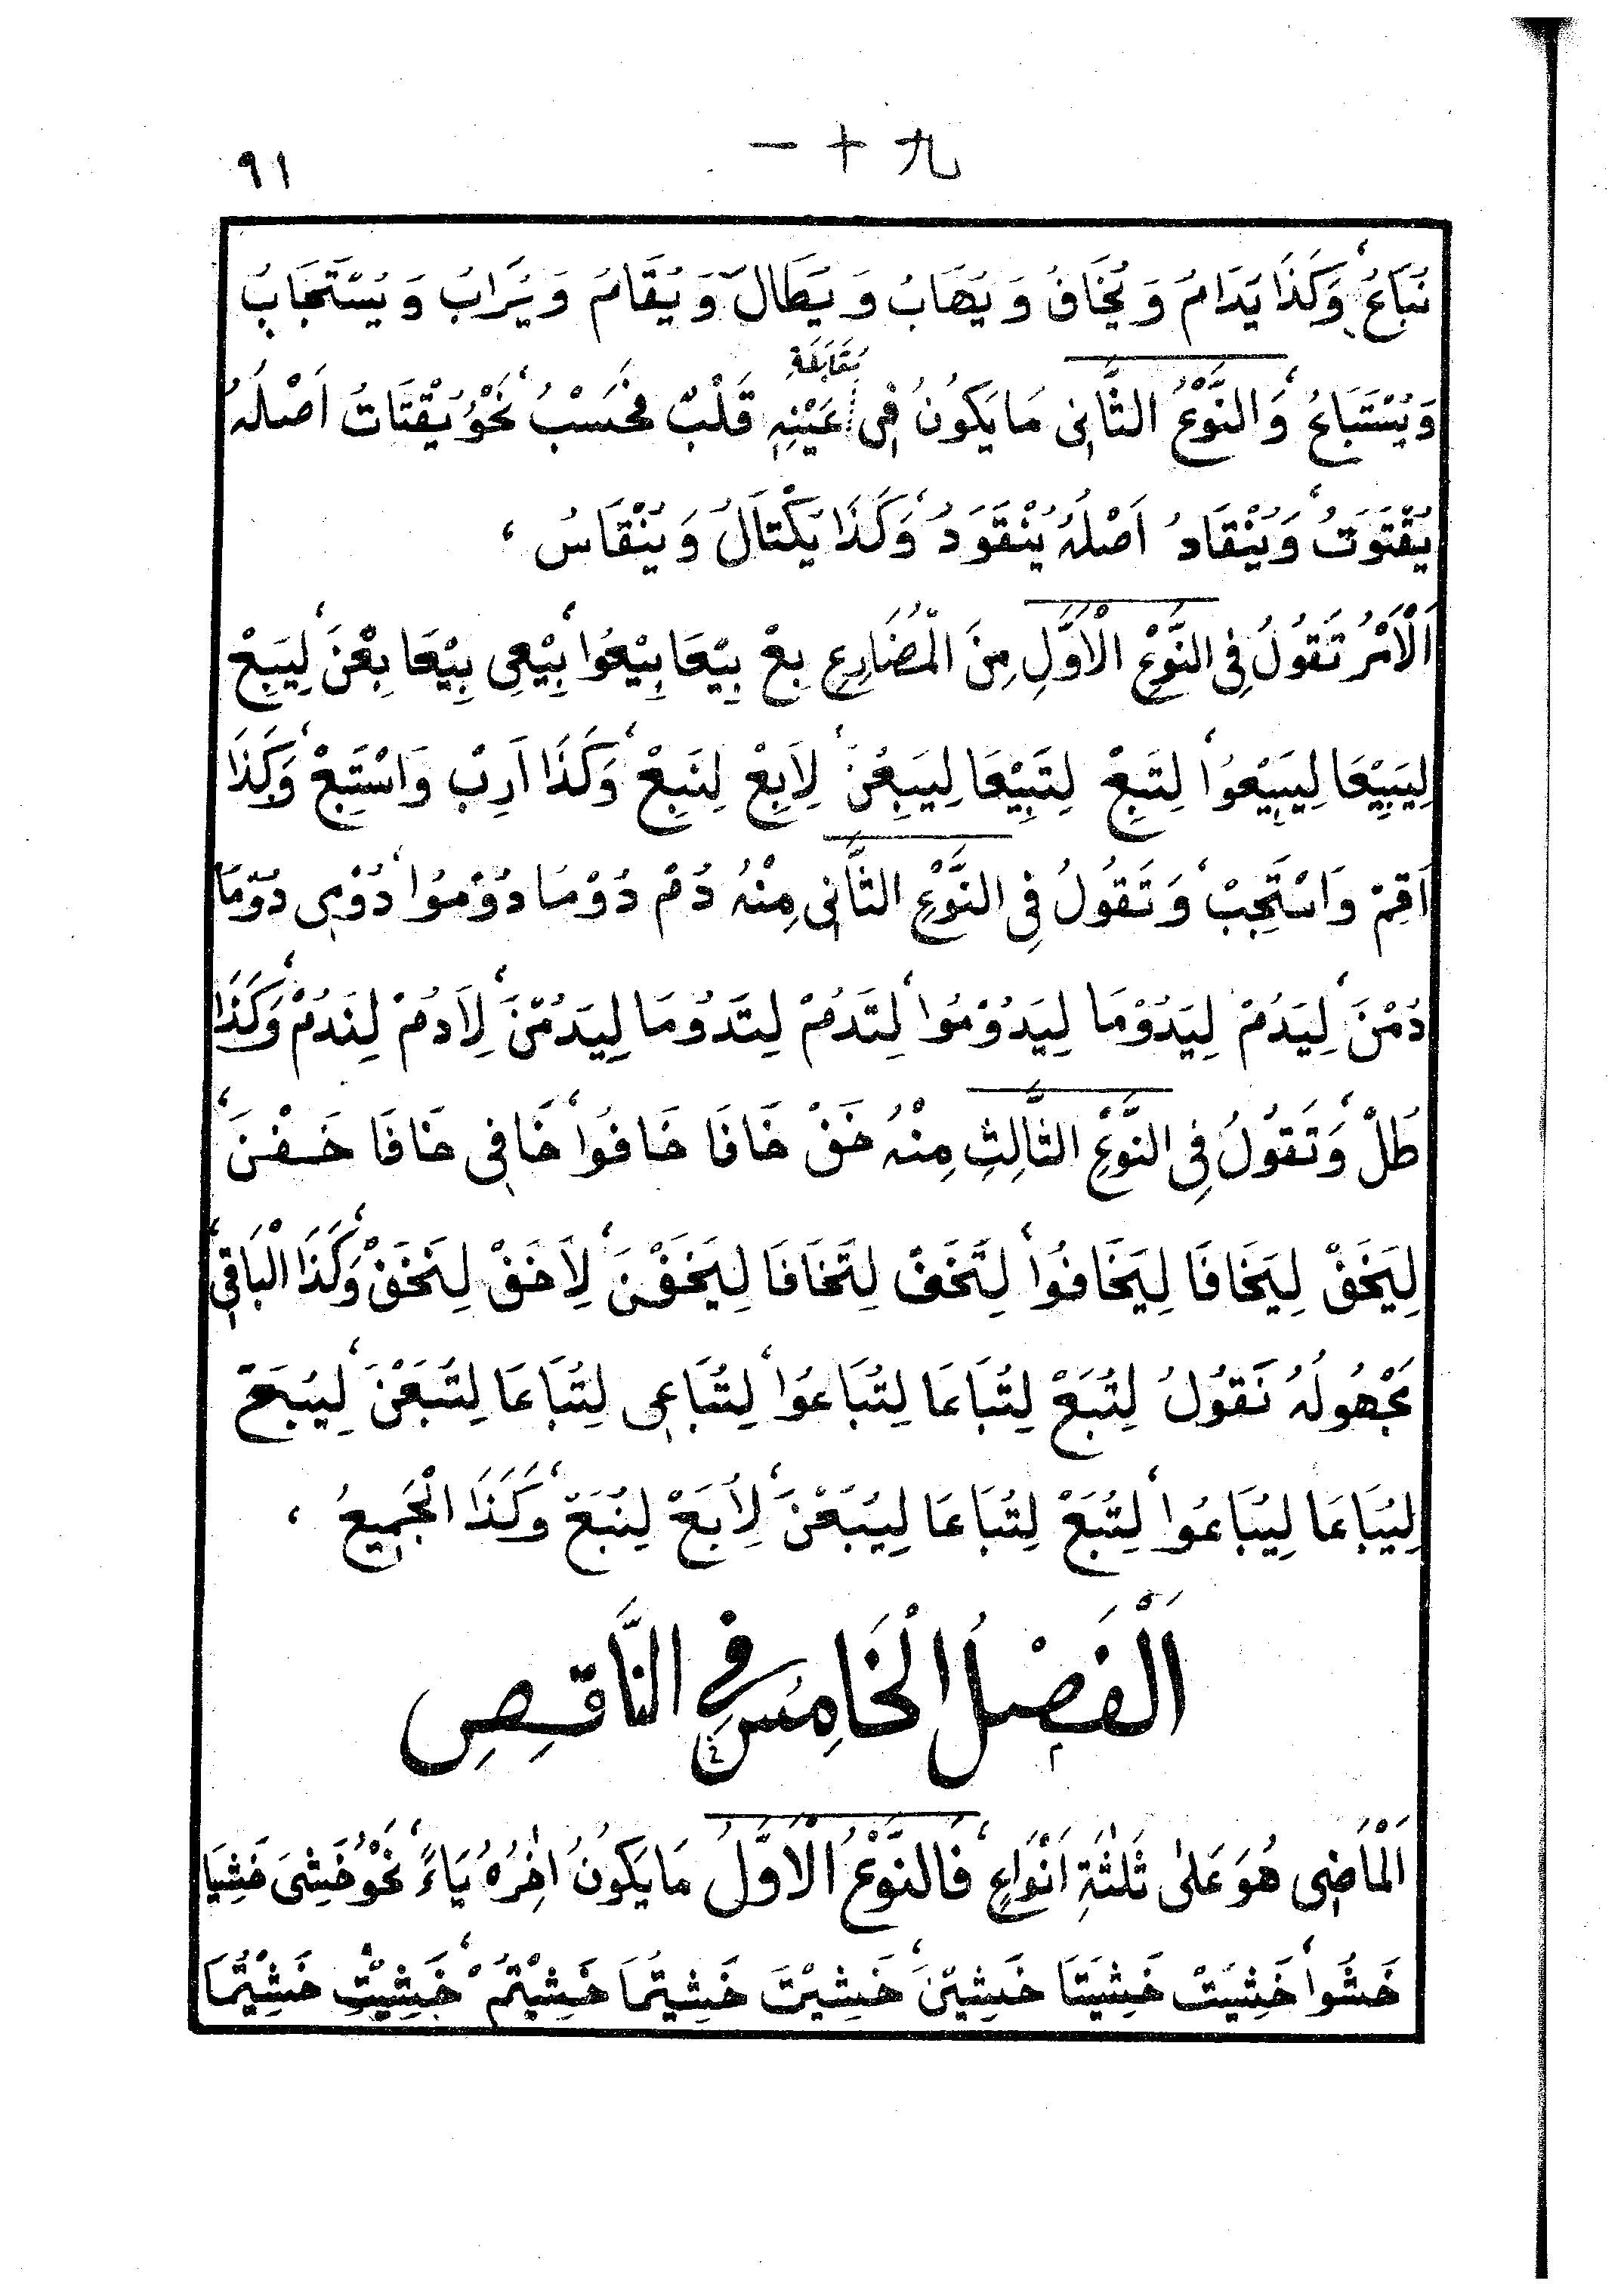 ٩١
一十九
نُبَاعُ، وَكَذَا يُدَامُ وَيُخَافُ وَيُهَابُ وَيُطَالُ وَيُقَامُ وَيُرَابُ وَيُسْتَجَابُ
مُتَقَابِلَةِ
وَيُسْتَبَاعُ، وَالنَّوْعُ الثَّانِى مَا يَكُونُ فِى عَيْنِهِ قَلْبٌ فَحَسْبُ، نَحْوُ يُقْتَاتُ اَصْلُهُ
يُقْتَوَتُ، وَيُنْقَادُ اَصْلُهُ يُنْقَوَدُ، وَكَذَا يُكْتَالُ وَيُنْقَاسُ،
اَلْاَمْرُ تَقُولُ فِى النَّوْعِ الْاَوَّلِ مِنَ الْمُضَارِعِ بِعْ بِيْعَا بِيْعُوا، بِيْعِى بِيْعَا بِعْنَ، لِيَبِعْ
لِيَبِيْعَا لِيَبِيْعُوا، لِتَبِعْ لِتَبِيْعَا لِيَبِعْنَ، لِاَبِعْ لِنَبِعْ، وَكَذَا اَرِبْ وَاسْتَبِعْ، وَكَذَا
اَقِمْ وَاسْتَجِبْ، وَتَقُولُ فِى النَّوْعِ الثَّانِى مِنْهُ دُمْ دُوْمَا دُوْمُوا، دُوْمِى دُوْمَا
دُمْنَ، لِيَدُمْ لِيَدُوْمَا لِيَدُوْمُوا، لِتَدُمْ لِتَدُومَا لِيَدُمْنَ، لِاَدُمْ لِنَدُمْ، وَكَذَا
طُلْ، وَتَقُولُ فِى النَّوْعِ الثَّالِثِ مِنْهُ خَفْ خَافَا خَافُوا، خَافِى خَافَا خَفْنَ،
لِيَخَفْ لِيَخَافَا لِيَخَافُوا، لِتَخَفْ لِتَخَافَا لِيَخَفْنَ، لِاَخَفْ لِنَخَفْ، وَكَذَا الْبَاقِى،
مَجْهُولُهُ تَقُولُ لِتُبَعْ لِتُبَاعَا لِتُبَاعُوا، لِتُبَاعِى لِتُبَاعَا لِتُبَعْنَ، لِيُبَعْ
لِيُبَاعَا لِيُبَاعُوا، لِتُبَعْ لِتُبَاعَا لِيُبَعْنَ، لِاُبَعْ لِنُبَعْ، وَكَذَا الْجَمِيعُ،
اَلْفَصْلُ الْخَامِسُ فِى النَّاقِصِ
اَلْمَاضِى هُوَ عَلٰى ثَلٰثَةِ اَنْوَاعٍ، فَالنَّوْعُ الْاَوَّلُ مَا يَكُونُ اٰخِرُهُ يَاءً، نَحْوُ خَشِىَ خَشِيَا
خَشُوا، خَشِيَتْ خَشِيَتَا خَشِيْنَ، خَشِيْتَ خَشِيْتُمَا خَشِيْتُمْ، خَشِيْتِ خَشِيْتُمَا